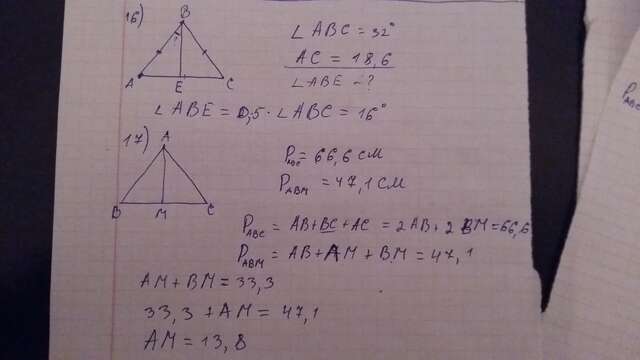 16)
B
A
E
C
∠ABC = 32°
AC = 18,6
∠ABE - ?
∠ABE = 0,5 · ∠ABC = 16°
17)
A
B
M
C
= 66,6 см
P_ABM = 47,1 см
P_ABC = AB + BC + AC = 2AB + 2BM = 66,6
P_ABM = AB + AM + BM = 47,1
AM + BM = 33,3
33,3 + AM = 47,1
AM = 13,8